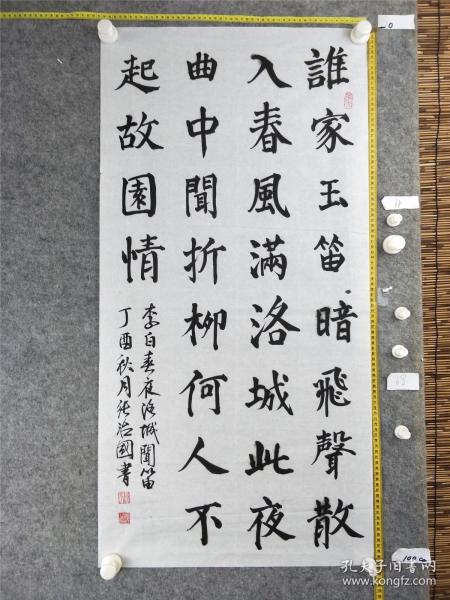 誰家玉笛暗飛聲散
入春風滿洛城此夜
曲中聞折柳何人不
起故園情
李白春夜洛城聞笛
丁酉秋月張治國書
0
孔夫子旧书网
www.kongfz.com